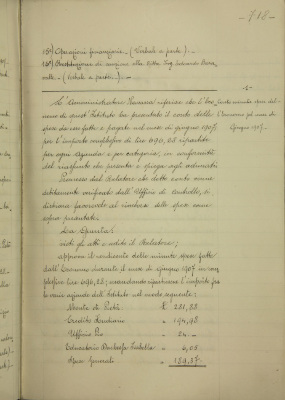 - 718 -
15º) Operazioni finanziarie. - (Verbale a parte). -
16º) Restituzione di cauzione alla Ditta Ing. Leonardo
- (Verbale a parte). -
L'Amministratore riferisce che l'Eco-
nomo di quest'Istituto ha presentato il conto delle
spese da esso fatte e pagate nel mese di giugno 1907,
per l'importo complessivo di lire 696,28 ripartite
per ogni azienda e per categoria, in conformità
del riassunto che presenta e spiega agli adunati.
Conto minute spese del-
l'Economo pel mese di
Giugno 1907. -
Premesso dal Relatore che detto conto venne
debitamente verificato dall'Ufficio di Controllo, si
dichiara favorevole al rimborso delle spese come
sopra presentate.
La Giunta:
visti gli atti e udito il Relatore;
approva il rendiconto delle minute spese fatte
dall'Economo durante il mese di Giugno 1907 in com-
plessive lire 696,28; mandandone ripartirsi l'importo fra
le varie aziende dell'Istituto nel modo seguente:
Monte di Pietà L. 281,88
Credito Fondiario " 194,98
Ufficio Pio " 24. -
Educatorio Duchessa Isabella " 6,05
Spese Generali " 189,37. -